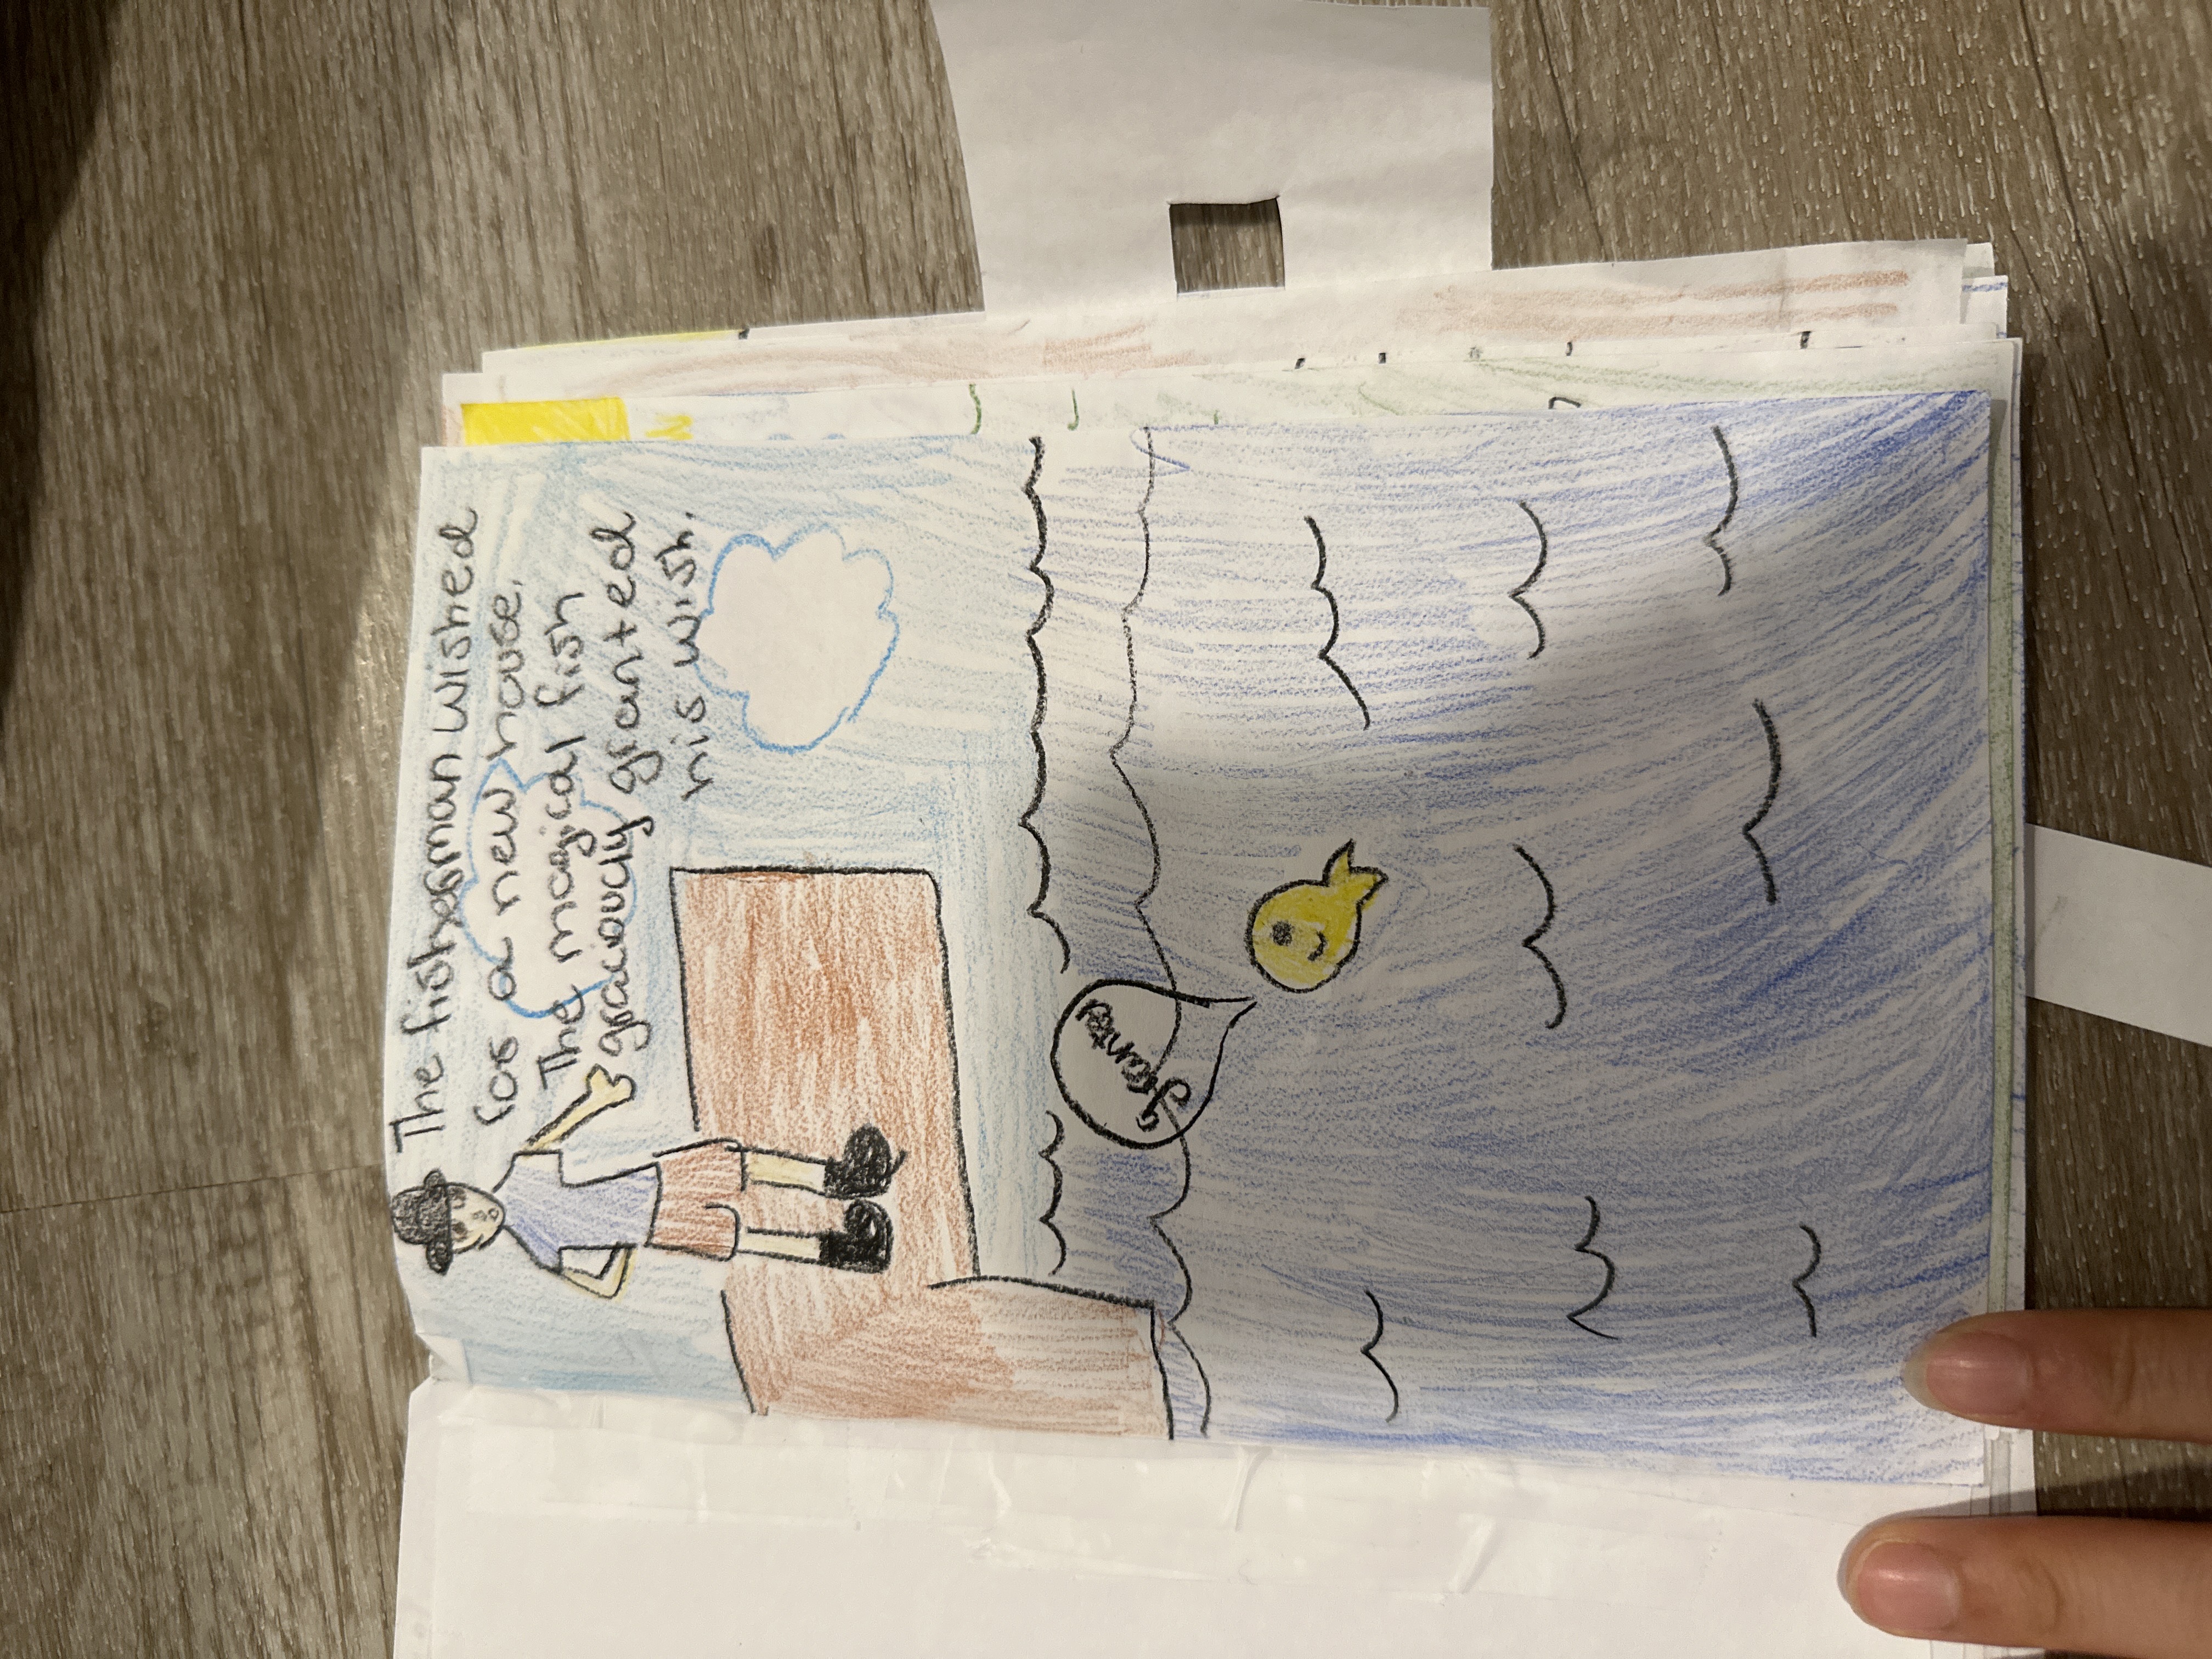 The fisherman wished
for a new house.
The magical fish
graciously granted
his wish.
granted